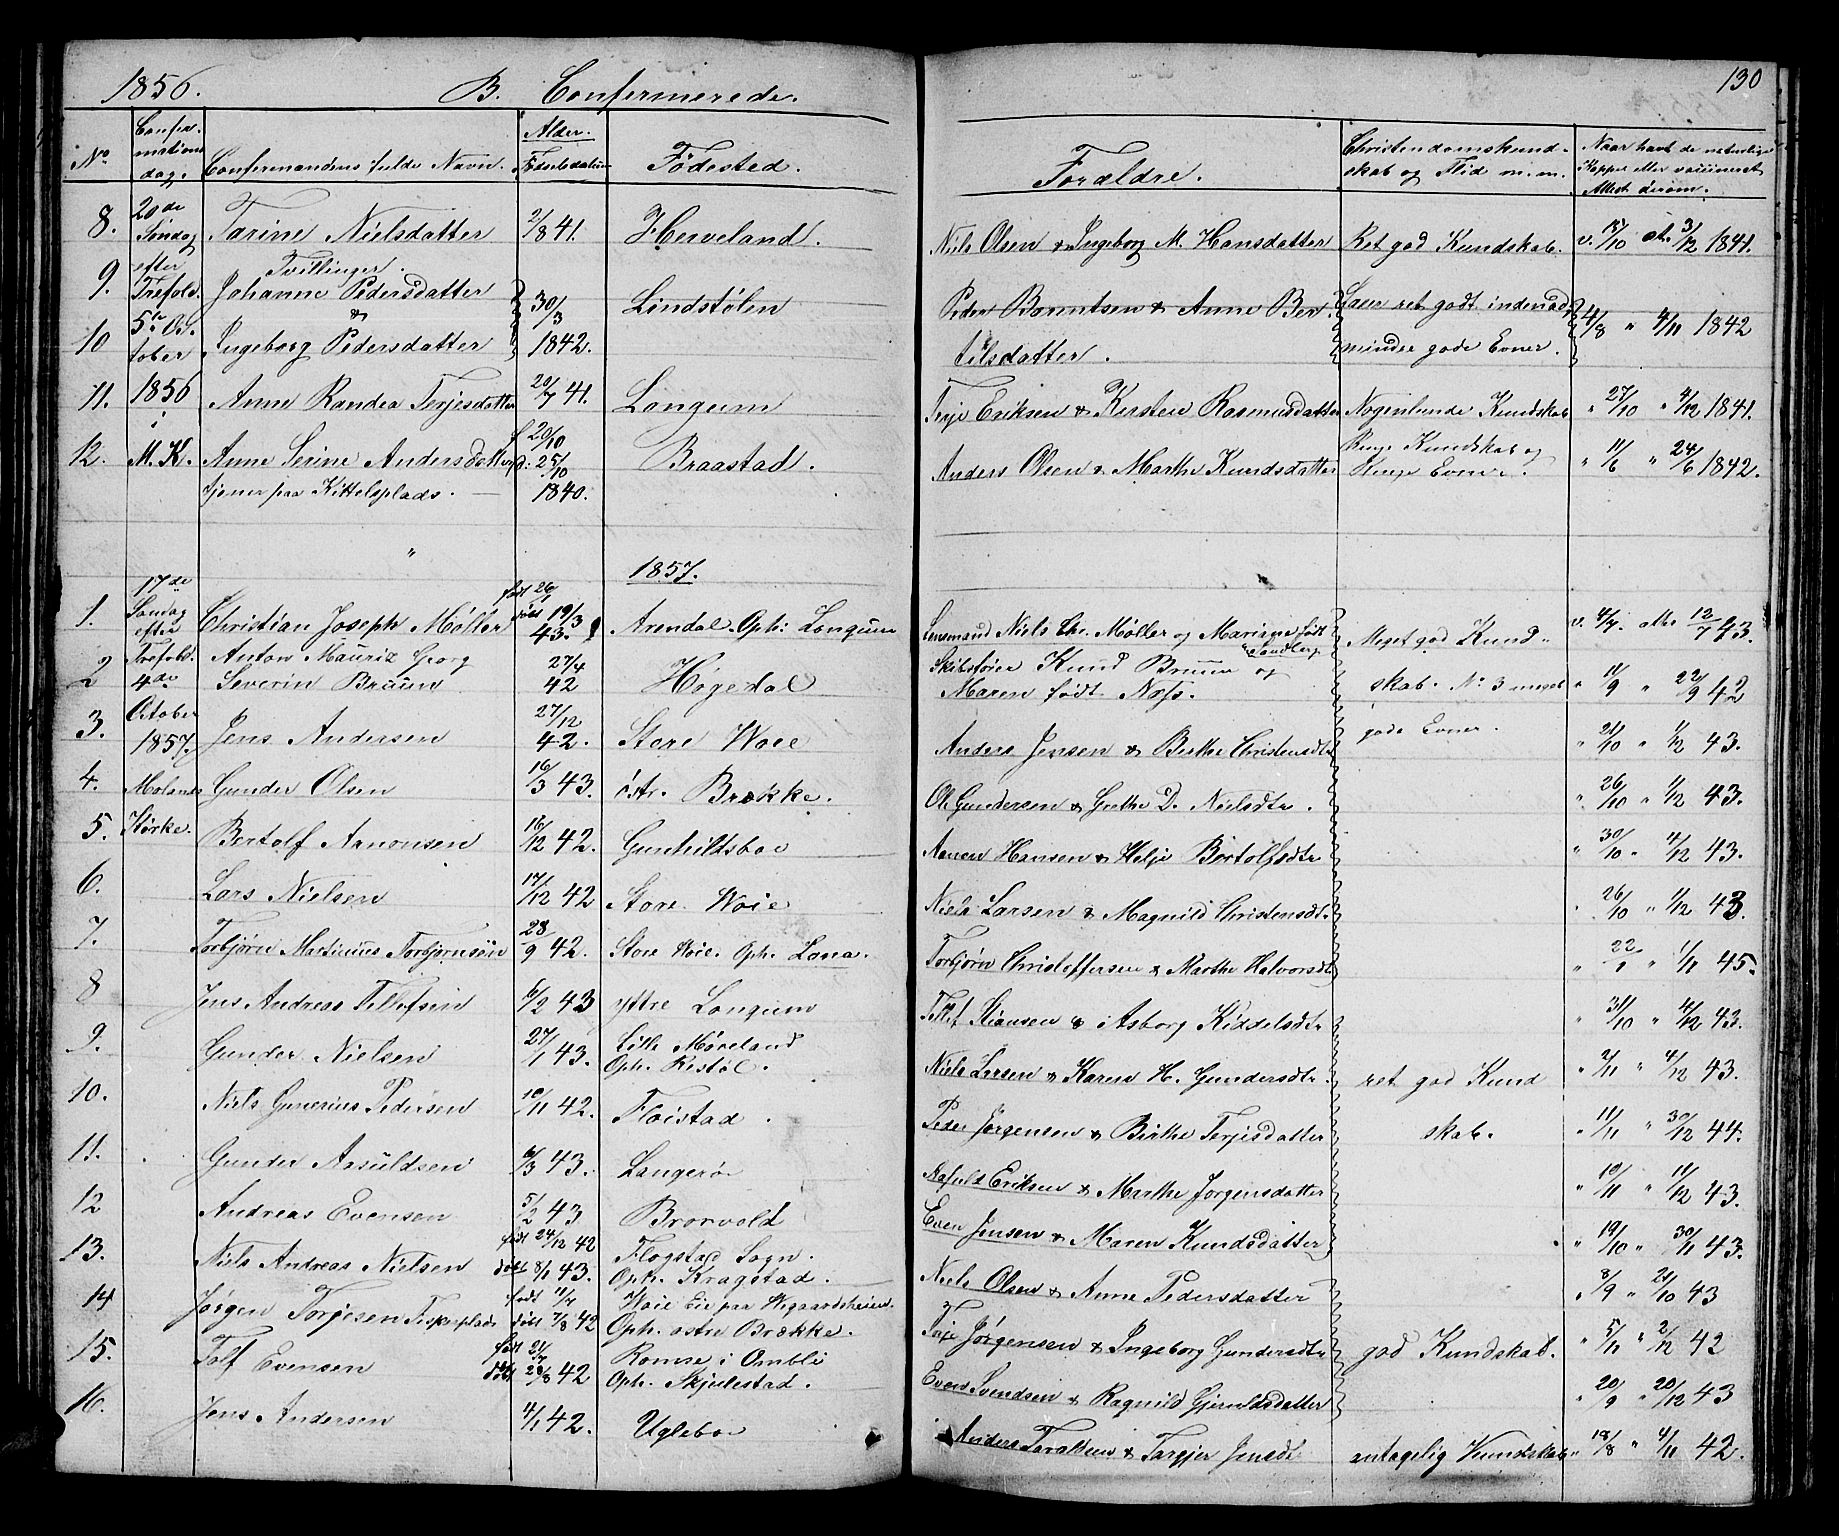 1856. B. Confermerede.
130
No
Confir-
mations
dag.
Confermandens fulde Navn.
Alder.
Fødselsdatum
Fødested.
Forældre.
Christendomskund-
skab og Flid m. m.
Naar havt de naturlige
Kopper eller vaccineret
Attest derom.
20de
Søndag
efter
Trefold.
5te Oc-
tober
1856
i
M. K.
8. Tarine Nielsdatter 2/8 41. Herveland. Niels Olsen & Ingeborg M. Hansdatter Ret god Kundskab. v. 15/10 att. 3/12 1841.
Tvillinger.
9. Johanne Pedersdatter
&
10 Ingeborg Pedersdatter
30/3
1842.
Lindstølen
Peder Berntsen & Anne Ber-
tilsdatter.
Læser ret godt indenad
mindre gode Evner.
4/8 " 4/11 1842
11. Anne Randea Terjesdatter 20/7 41. Longum Terje Eriksen & Kirsten Rasmusdatter Nogenlunde Kundskab " 27/10 " 4/12 1841.
12. Anne Serine Andersdatter
tjener paa Kittelsplads.
f 20/10
d: 25/10
1840.
Braastad.
Anders Olsen & Marthe Knudsdatter
Ringe Kundskab og
Ringe Evner.
" 11/6 " 24/6 1842.
1857.
17de
Søndag
efter
Trefold.
4de
October
1857.
Molands
Kirke.
1. Christian Joseph Møller født 26/1 døbt 19/3 43. Arendal. Oph: Longum Lensmand Niels Chr. Møller og Mariane født Sandberg v. 4/7. att. 12/7 43.
Meget god Kund-
skab. No 3 meget
gode Evner.
2 Anton Mauritz Georg
Severin Bruun
27/4
42
Høgedal
Skibsfører Knud Bruun og
Maren født Næss.
" 11/9 " 22/9 42
3. Jens Andersen 27/12 42. Store Woie Anders Jensen & Birthe Christensdtr " 21/10 " 1/12 43.
4. Gunder Olsen 16/3 43. østr. Brække. Ole Gundersen & Grethe D. Nielsdtr. " 26/10 " 1/12 43.
5. Bertolf Arnonsen 16/12 42. Gunhildsboe Aanen Hansen & Helje Bertolfsdtr " 30/10 " 4/12 43.
6. Lars Nielsen 17/12 42 Store Woie Niels Larsen & Magnild Christensdt. " 26/10 " 1/12 43.
7. Torbjørn Martinius Torbjørnsøn 28/9 42. Store Woie. Oph. Lona. Torbjørn Christoffersen & Marthe Halvorsdt " 22/1 " 1/11 45.
8 Jens Andreas Tellefsen 6/2 43 yttre Longum Tellef Stiansen & Asborg Kiddelsdtr " 31/10 " 4/12 43.
9. Gunder Nielsen 27/1 43. Lille Møreland
Oph. Ristøl.
Niels Larsen & Karen H. Gundersdtr. " 2/11 " 4/12 43.
ret god Kund
skab.
10. Niels Gunerius Pedersen 10/11 42. Floistad. Peder Jørgensen & Birthe Terjesdatter " 11/11 " 30/12 44.
11. Gunder Aasuldsen 6/3 43. Langerøe Aasuld Eriksen & Marthe Jørgensdatter " 10/11 " 11/12 43.
12 Andreas Evensen 5/2 43 Brorvold Even Jensen & Maren Knudsdatter " 19/10 " 30/11 43.
13. Niels Andreas Nielsen født 24/12 42
døbt 8/1 43.
Flogstad Sogn.
Oph. Kragstad.
Niels Olsen & Anne Pedersdatter " 8/9 " 21/10 43
14 Jørgen Terjesen Fiskerplads født 11/7
døbt 7/8 42
Woie Eie paa Wegaardsheien.
Oph. østre Brække.
Terje Jørgensen & Ingeborg Gundersdtr god Kundskab. " 5/11 " 2/12 42
15. Tolf Evensen født 21/7
døbt 28/8 42
Romse i Omblie
Oph. Skjulestad.
Even Svendsen & Ragnild Gjeruldsdatter " 20/9 " 20/12 43
16. Jens Andersen 4/1 42. Ugleboe Anders Taraldsen & Targjer Jensdt antagelig Kundskab " 18/8 " 4/11 42.